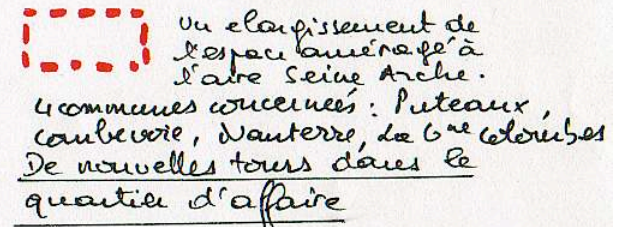 Un elargissement de
l'espace aménagé à
l'aire Seine Arche.
4 communes concernées : Puteaux,
Courbevoie, Nanterre, La Gne Colombes
De nouvelles tours dans le
quartier d'affaire